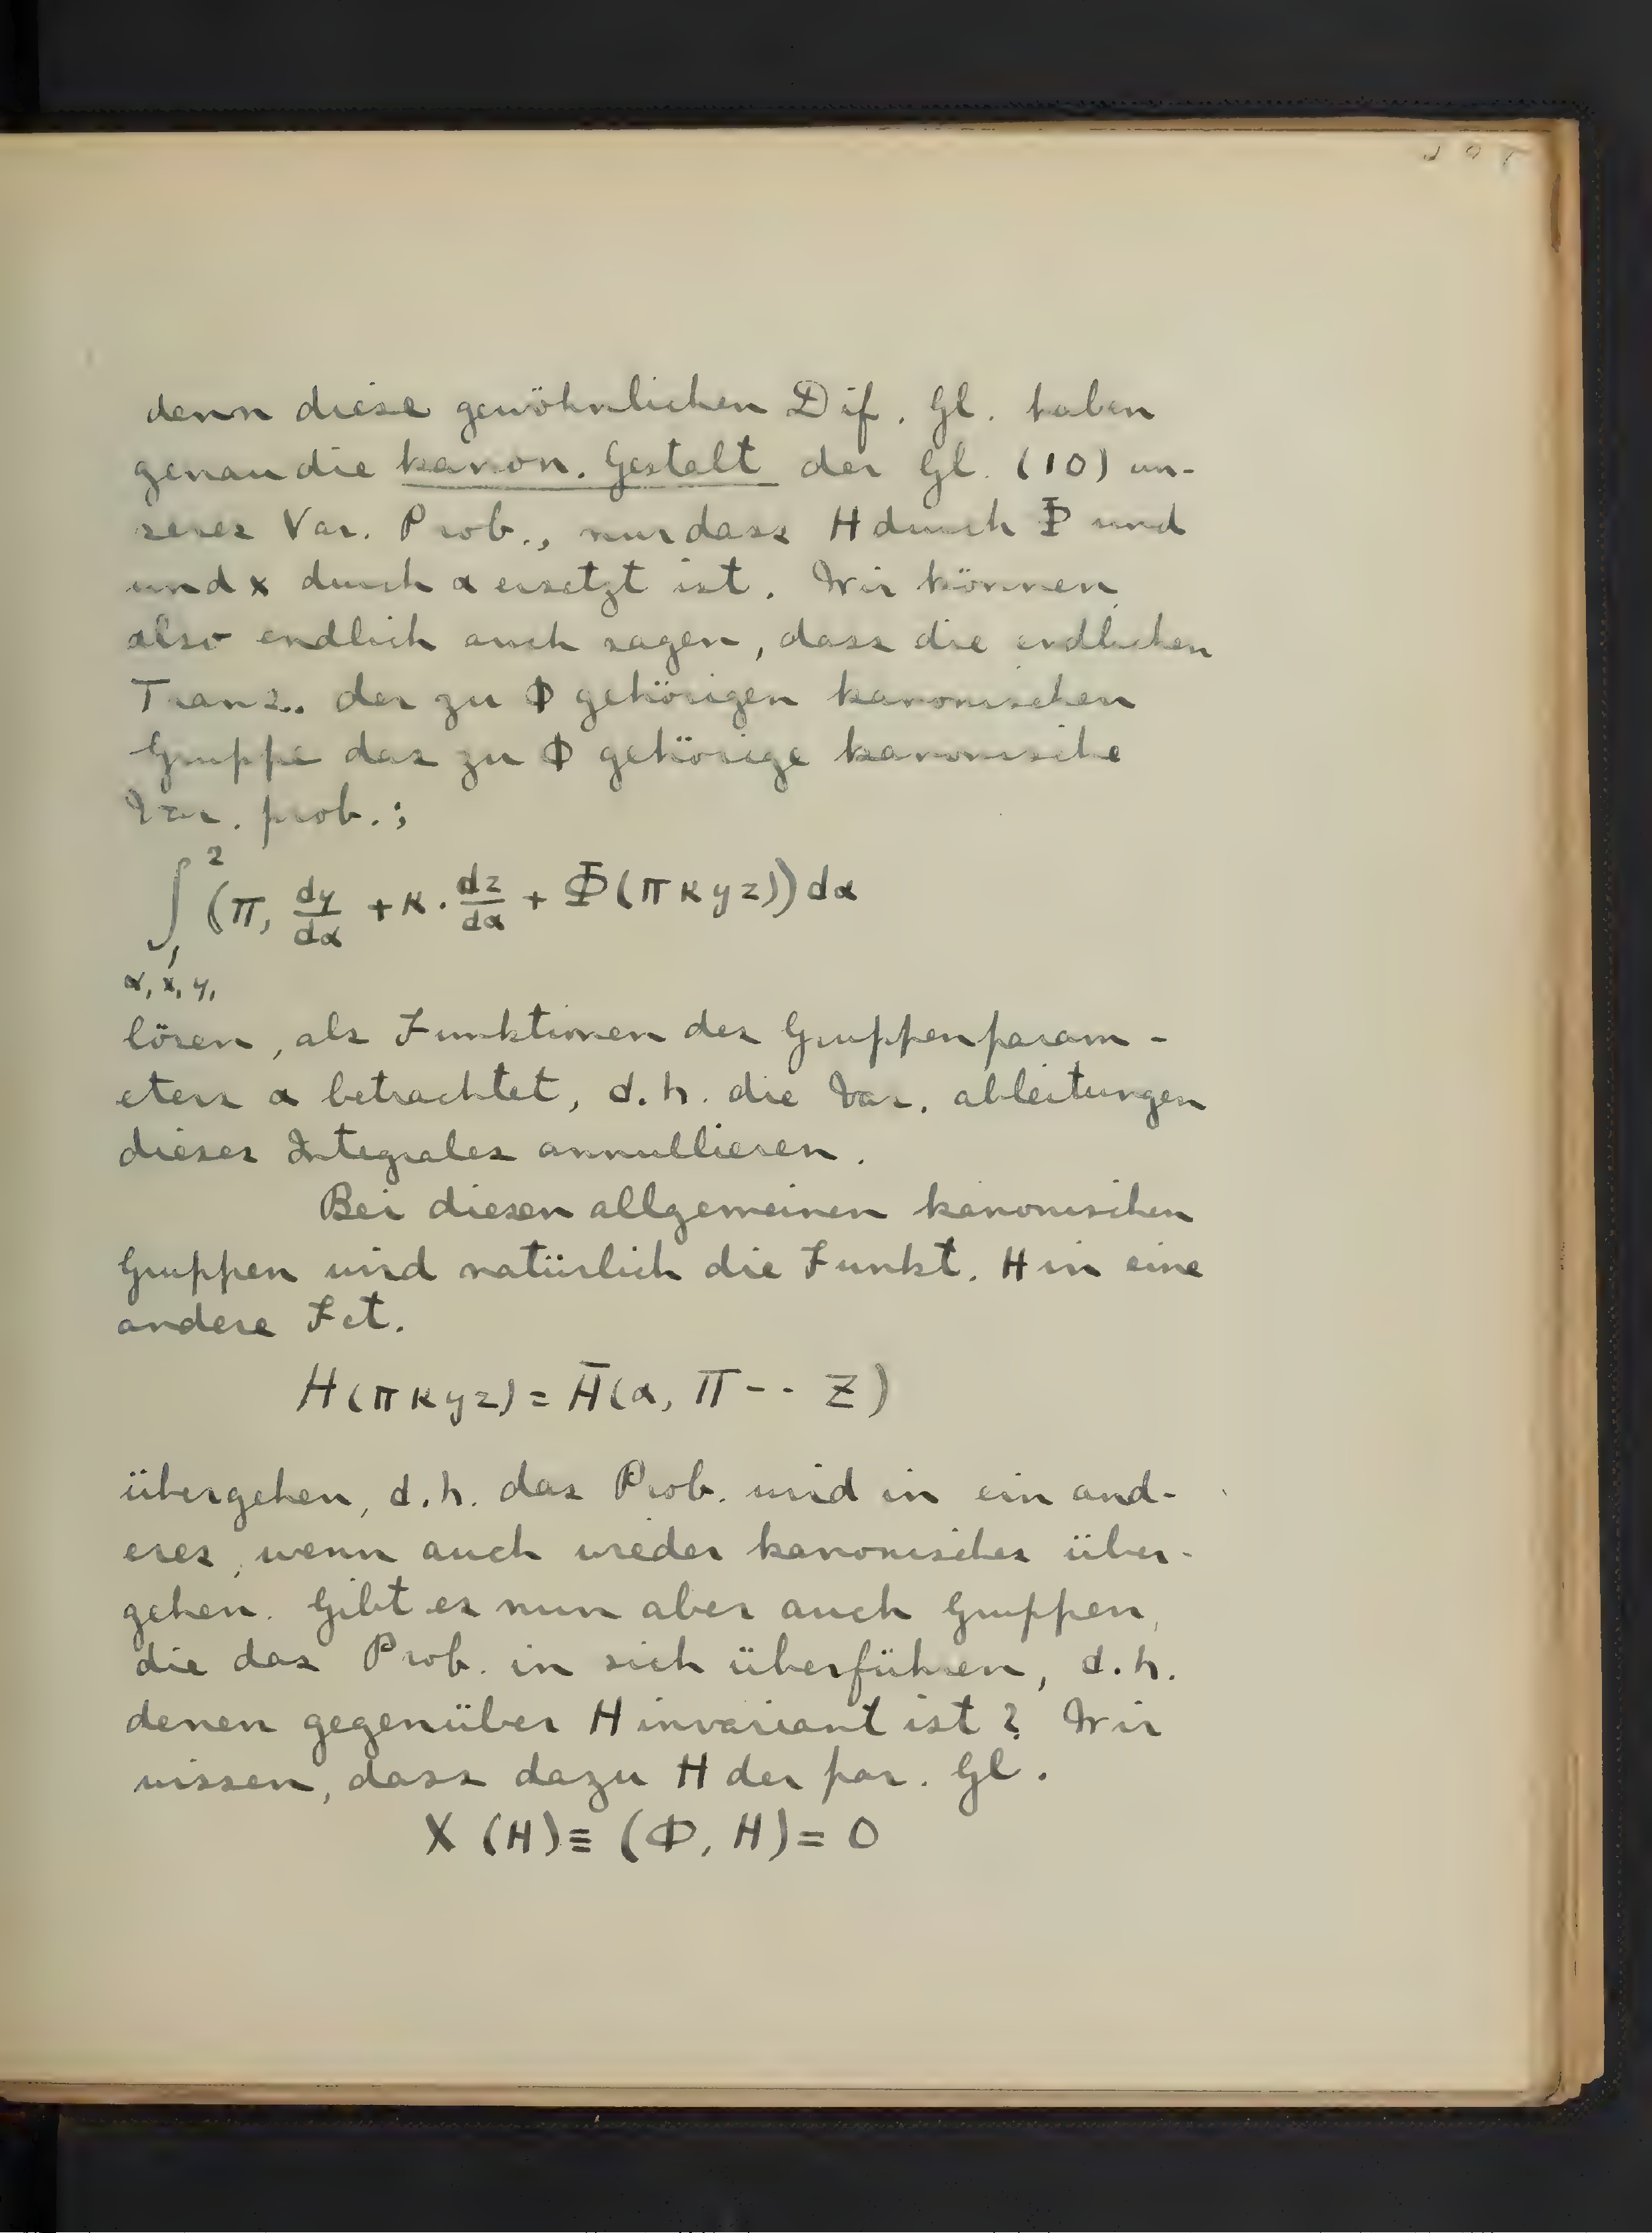 denn diese gewöhnlichen Dif. Gl. haben
genau die kanon. Gestalt der Gl. (10) un-
seres Var. Prob., nur dass H durch Φ und
und x durch α ersetzt ist. Wir können
also endlich auch sagen, dass die endlichen
Trans.. der zu Φ gehörigen kanonischen
Gruppe das zu Φ gehörige kanonische
Var. prob.;
∫₁² (π, dy/dα + κ · dz/dα + Φ(π κ y z)) dα
α, x, y,
lösen, als Funktionen des Gruppenparam-
eters α betrachtet, d.h. die Var. ableitungen
dieses Integrales annullieren.
Bei diesen allgemeinen kanonischen
Gruppen wird natürlich die Funkt. H in eine
andere Fct.
H(π κ y z) = H̄(α, Π -·· Z)
übergehen, d.h. das Prob. wird in ein and-
eres, wenn auch wieder kanonisches über-
gehen. Gibt es nun aber auch Gruppen,
die das Prob. in sich überführen, d.h.
denen gegenüber H invariant ist? Wir
wissen, dass dazu H der par. Gl.
X (H) ≡ (Φ, H) = 0